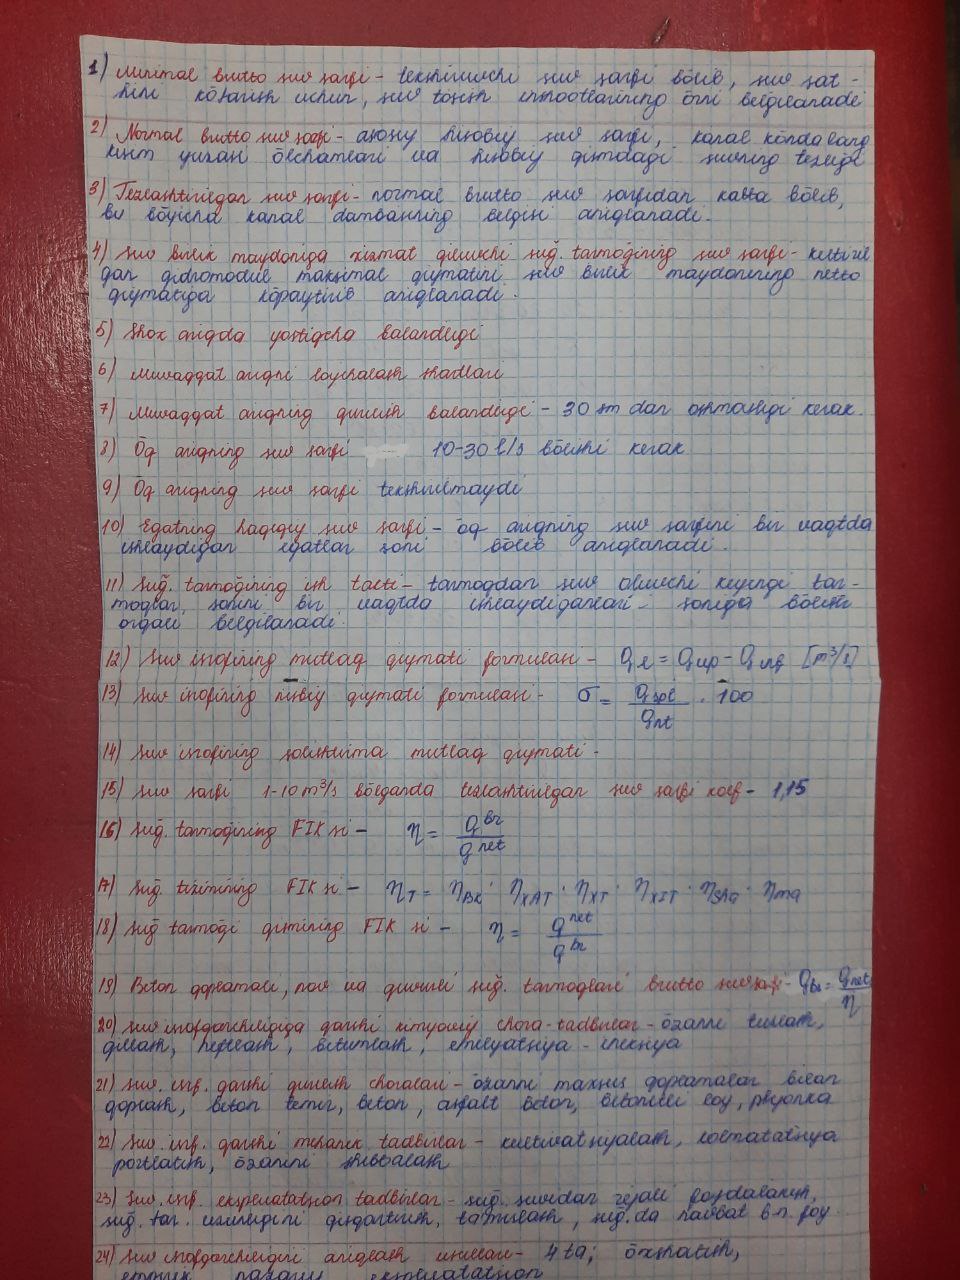 1) Minimal brutto suv sarfi - tekshiruvchi suv sarfi bōlib, suv sat-
hini kōtarish uchun, suv tōsish inshootlarining ōrni belgilanadi
2) Normal brutto suv sarfi - asosiy hisobiy suv sarfi, kanal kōndalang
kesim yuzasi ōlchamlari va hisobiy qismdagi suvning tezligi
3) Tezlashtirilgan suv sarfi - normal brutto suv sarfidan katta bōlib,
bu bōyicha kanal dambasining belgisi aniqlanadi.
4) Suv birlik maydoniga xizmat qiluvchi suğ. tarmoğining suv sarfi - keltiril
gan gidromodul maksimal qiymatini suv birlik maydonining netto
qiymatiga kōpaytirib aniqlanadi.
5) Shox ariqda yostiqcha balandligi
6) Muvaqqat ariqni loyihalash shartlari
7) Muvaqqat ariqning qurilish balandligi - 30 sm dan oshmasligi kerak.
8) Ōq ariqning suv sarfi 10-30 l/s bōlishi kerak
9) Ōq ariqning suv sarfi tekshirilmaydi
10) Egatning haqiqiy suv sarfi - ōq ariqning suv sarfini bir vaqtda
ishlaydigan egatlar soni bōlib aniqlanadi.
11) Suğ. tarmoğining ish takti - tarmoqdan suv oluvchi keyingi tar-
moqlar, sonini bir vaqtda ishlaydiganlari - soniga bōlish
orqali belgilanadi.
12) Suv isrofining mutlaq qiymati formulasi - [m³/s]
13) Suv isrofining nisbiy qiymati formulasi - σ = · 100
14) Suv isrofining solishtirma mutlaq qiymati -
15) Suv sarfi 1-10 m³/s bōlganda tezlashtirilgan suv sarfi koef - 1,15
16) Suğ. tarmoğining FIK si - η = Q^br / Q^net
17) Suğ. tizimining FIK si - η_T = η_BK · η_XAT · η_XT · η_XIT · η_ShA · η_MA
18) Suğ tarmoği qismining FIK si - η = Q^net / Q^br
19) Beton qoplamali, nov va quvurli suğ. tarmoqlari brutto suv sarfi - Q_br = Q_net / η
20) Suv isrofgarchiligiga qarshi kimyoviy chora-tadbirlar - ōzanni tuzlash,
gillash, neftlash, bitumlash,
21) Suv. isrf. qarshi qurilish choralari - ōzanni maxsus qoplamalar bilan
qoplash, beton temir, beton, asfalt beton, betonitli loy, plyonka
22) Suv isrf. qarshi mexanik tadbirlar - kultivatsiyalash, kolmatatsiya
portlatish, ōzanni shibbalash
23) Suv. isrf. ekspluatatsion tadbirlar - suğ. suvidan rejali foydalanish,
suğ. tar. uzunligini qisqartirish, ta'mirlash, suğ. da navbat b-n foy
24) Suv isrofgarchiligini aniqlash usullari - 4 ta; ōxshatish,
empirik nazariy ekspluatatsion